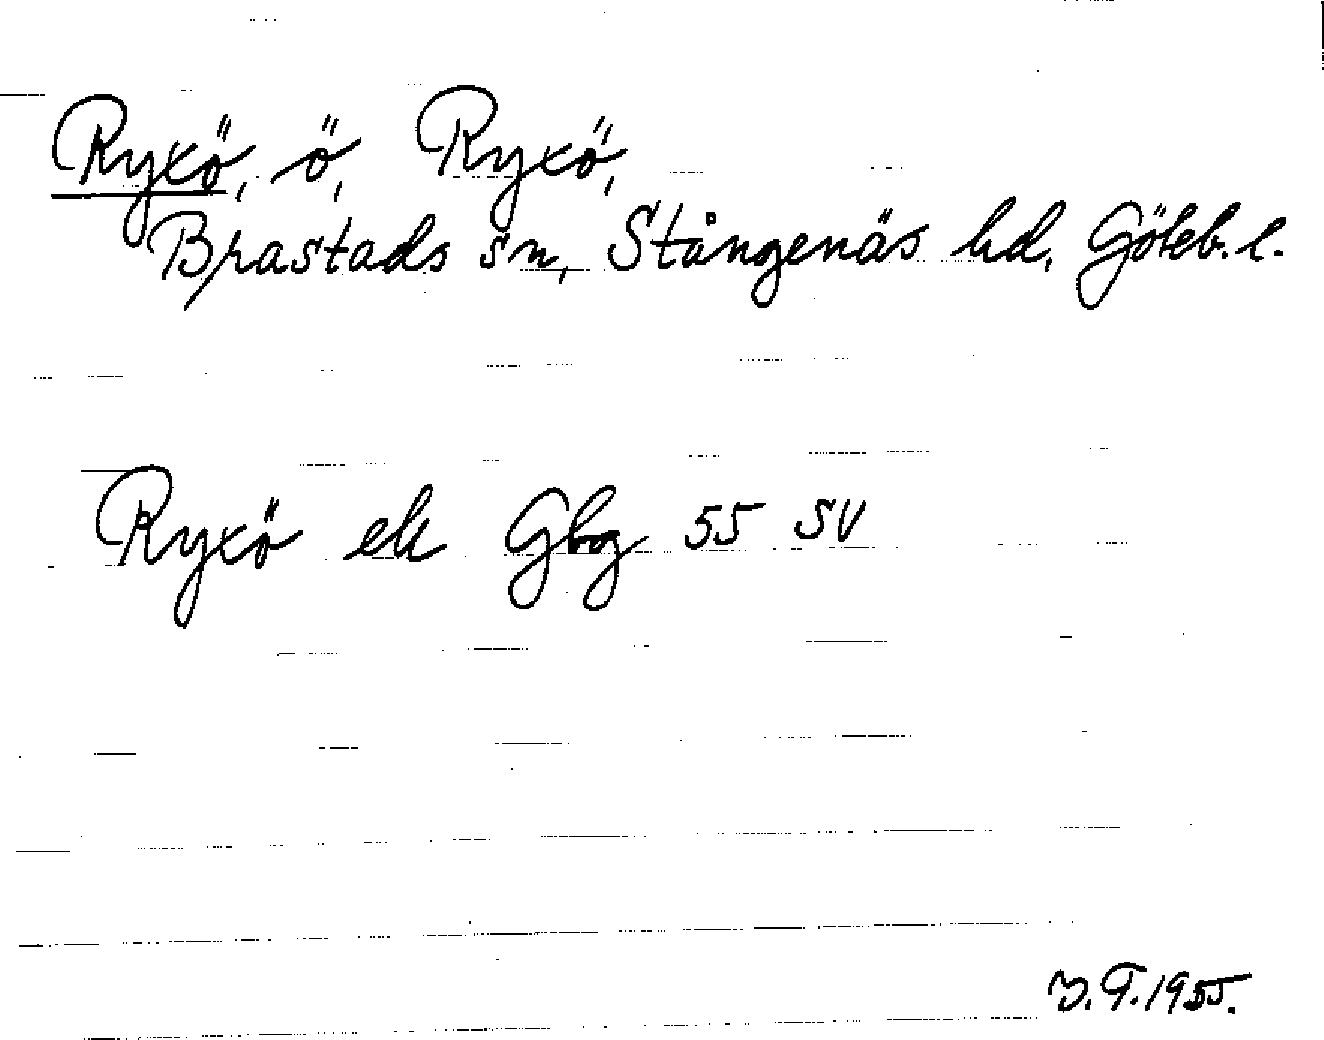 Ryxö, ö, Ryxö,
Brastads sn, Stångenäs hd, Göteb. l.
Ryxö ek Gbg 55 SV
J. T. 1955.